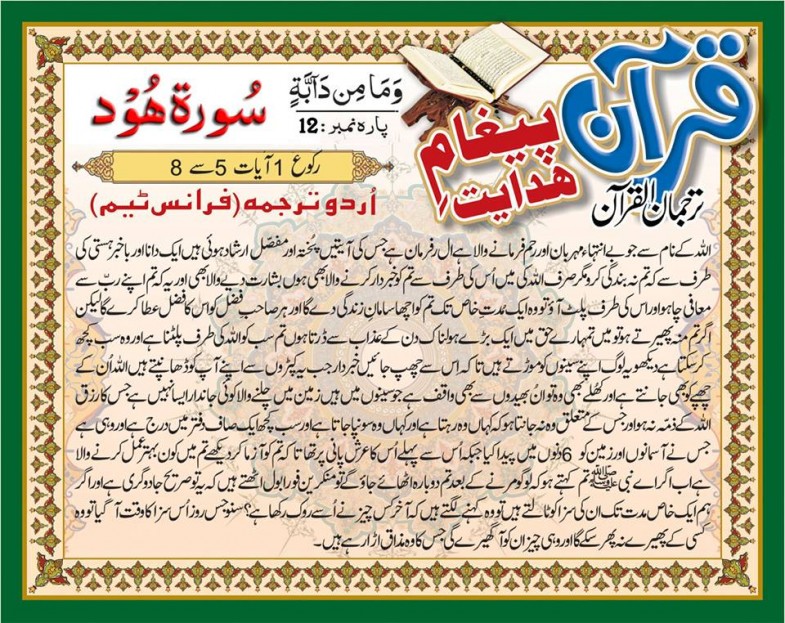 قرآن
پیغامِ
ھدایت
ترجمان القرآن
وَمَا مِن دَآبَّةٍ
پارہ نمبر : 12
سُورۃ ھُوْد
رکوع 1 آیات 5 سے 8
اُردو ترجمہ (فرانس ٹیم)
اللہ کے نام سے جو بے انتہاء مہربان اور رحم فرمانے والا ہے ال ر فرمان ہے جس کی آیتیں پُختہ اور مفصّل ارشاد ہوئی ہیں ایک دانا اور باخبر ہستی کی
طرف سے کہ تم نہ بندگی کرو مگر صرف اللہ کی میں اُس کی طرف سے تم کو خبردار کرنے والا بھی ہوں بشارت دینے والا بھی اور یہ کہ تم اپنے ربّ سے
معافی چاہو اور اس کی طرف پلٹ آؤ تو وہ ایک مدت خاص تک تم کو اچھا سامانِ زندگی دے گا اور ہر صاحب فضل کو اس کا فضل عطا کرے گا لیکن
اگر تم منہ پھیرتے ہو تو میں تمہارے حق میں ایک بڑے ہولناک دن کے عذاب سے ڈرتا ہوں تم سب کو اللہ کی طرف پلٹنا ہے اور وہ سب کچھ
کر سکتا ہے دیکھو یہ لوگ اپنے سینوں کو موڑتے ہیں تا کہ اس سے چھپ جائیں خبردار جب یہ کپڑوں سے اپنے آپ کو ڈھانپتے ہیں اللہ اُن کے
چھپے کو بھی جانتے ہے اور کھلے بھی وہ تو ان بھیدوں سے بھی واقف ہے جو سینوں میں ہیں زمین میں چلنے والا کوئی جاندار ایسا نہیں ہے جس کا رزق
اللہ کے ذمّہ نہ ہو اور جس کے متعلق وہ نہ جانتا ہو کہ کہاں وہ رہتا ہے اور کہاں وہ سونپا جاتا ہے اور سب کچھ ایک صاف دفتر میں درج ہے اور وہی ہے
جس نے آسمانوں اور زمین کو 6 دنوں میں پیدا کیا جبکہ اس سے پہلے اُس کا عرش پانی پر تھا تا کہ تم کو آزما کر دیکھے تم میں کون بہتر عمل کرنے والا
ہے اب اگر اے نبی ﷺ تم کہتے ہو کہ لوگو مرنے کے بعد تم دوبارہ اٹھائے جاؤ گے تو منکرین فورا بول اٹھتے ہیں کہ یہ تو صریح جادوگری ہے اور اگر
ہم ایک خاص مدت تک ان کی سزا کو ٹالتے ہیں تو وہ کہنے لگتے ہیں کہ آخر کس چیز نے اُسے روک رکھا ہے؟ سنو جس روز اُس سزا کا وقت آ گیا تو وہ
کسی کے پھیرے نہ پھر سکے گا اور وہی چیز ان کو آ گھیرے گی جس کا وہ مذاق اڑا رہے ہیں۔